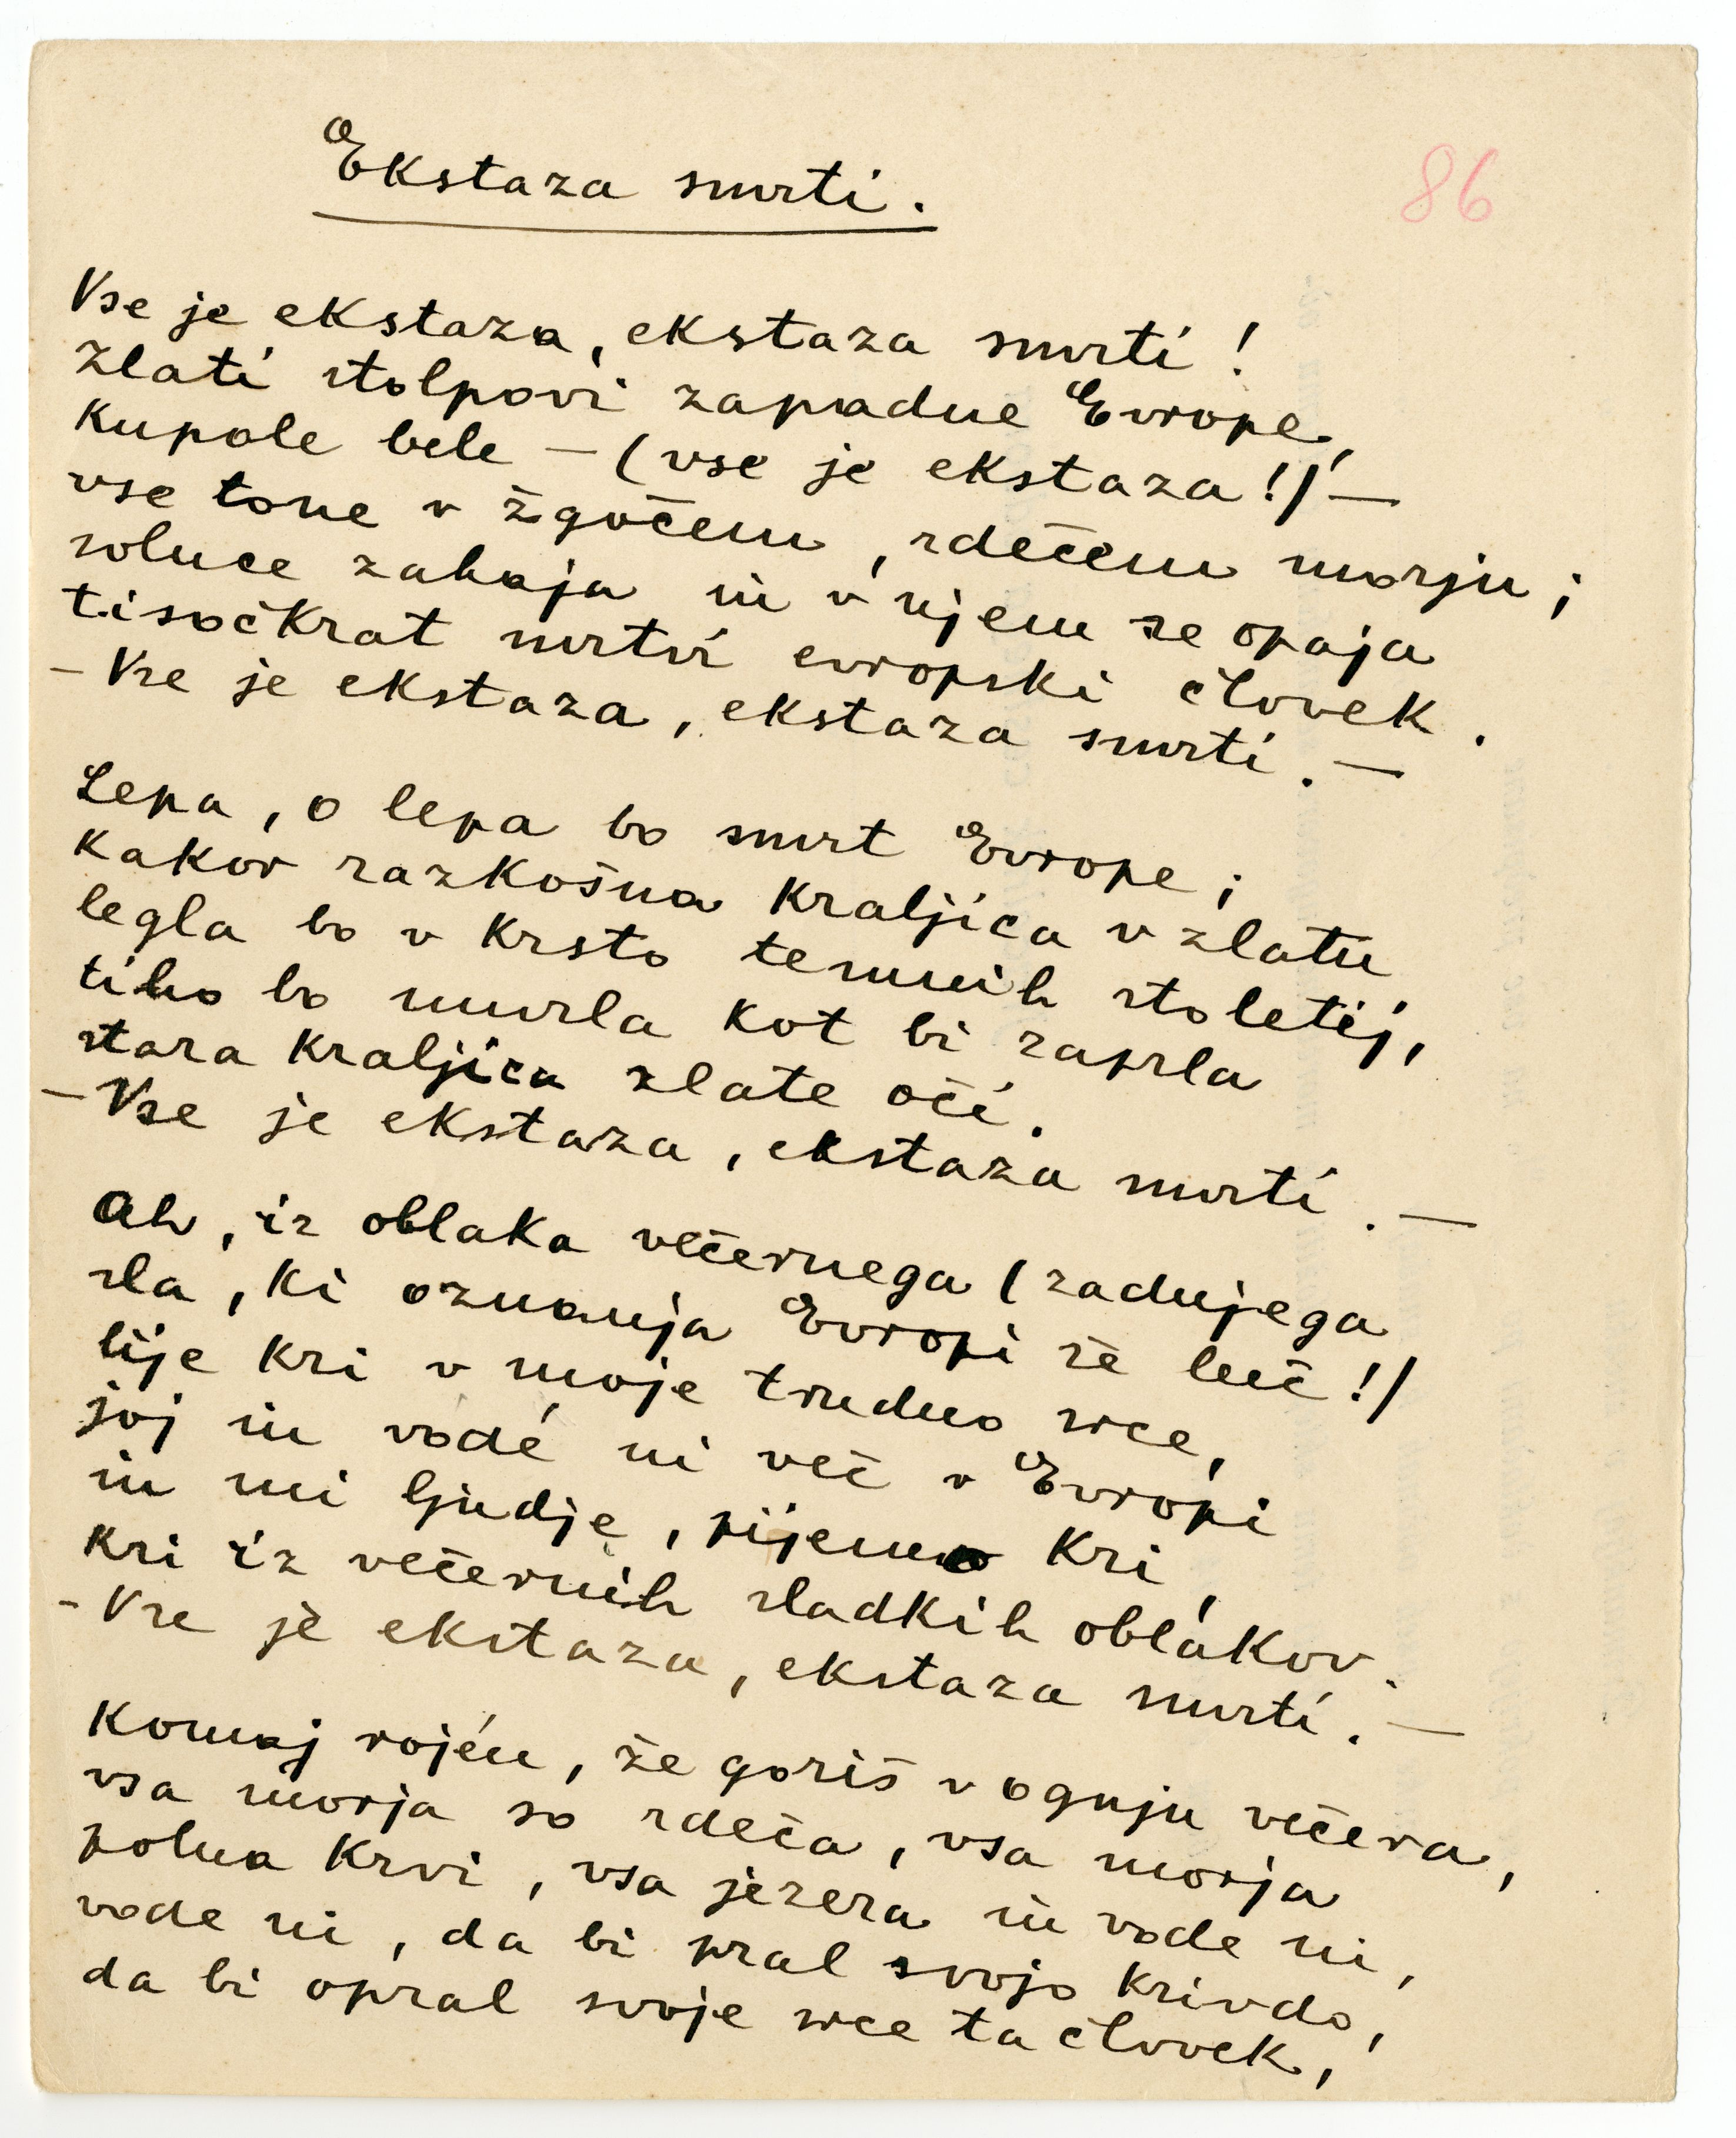 Ekstaza smrti.
86
Vse je ekstaza, ekstaza smrti!
Zlati stolpovi zapadne Evrope,
kupole bele – (vse je ekstaza!) –
vse tone v žgočem, rdečem morju;
solnce zahaja in v njem se opaja
tisočkrat mrtvi evropski človek.
– Vse je ekstaza, ekstaza smrti. –
Lepa, o lepa bo smrt Evrope;
kakor razkošna kraljica v zlatu
legla bo v krsto temnih stoletij,
tiho bo umrla kot bi zaprla
stara kraljica zlate oči.
– Vse je ekstaza, ekstaza smrti. –
Ah, iz oblaka večernega (zadnjega
sla, ki oznanja Evropi še luč!)
lije kri v moje trudno srce,
joj in vode ni več v Evropi
in mi ljudje, pijemo kri,
kri iz večernih sladkih oblakov.
- Vse je ekstaza, ekstaza smrti. –
Komaj rojen, že goriš v ognju večera,
vsa morja so rdeča, vsa morja
polna krvi, vsa jezera in vode ni,
vode ni, da bi pral svojo krivdo,
da bi opral svoje srce ta človek,